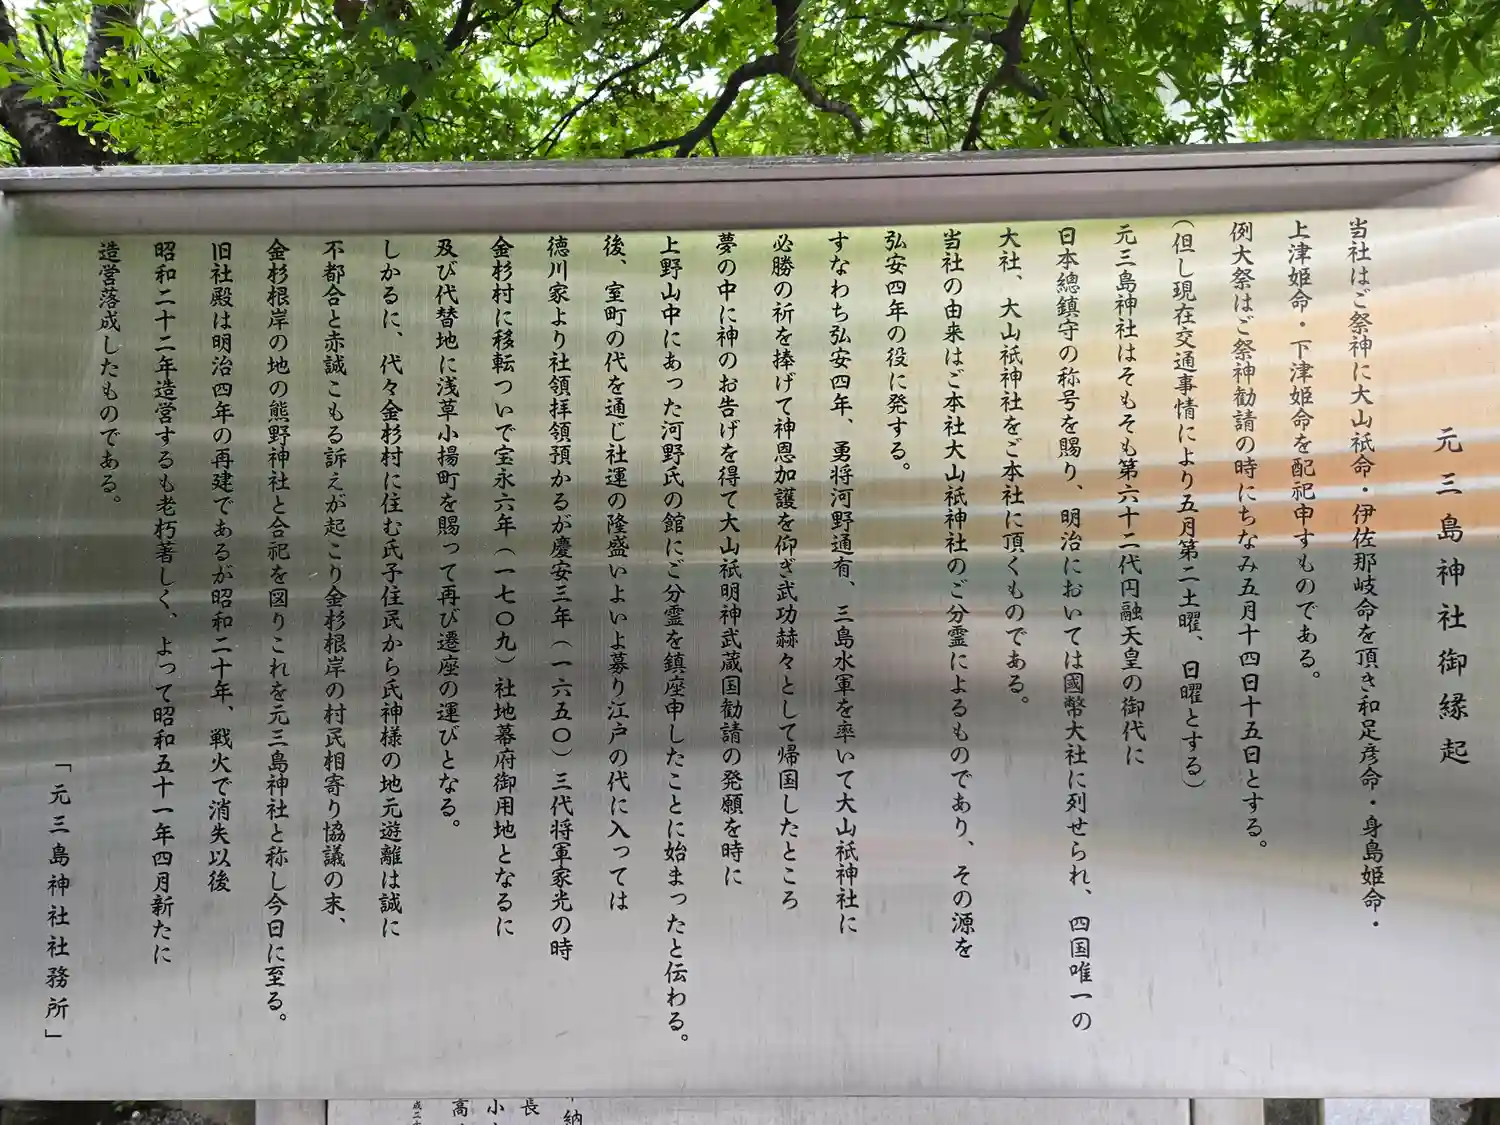 元三島神社御縁起
当社はご祭神に大山祇命・伊佐那岐命を頂き和足彦命・身島姫命・
上津姫命・下津姫命を配祀申すものである。
例大祭はご祭神勧請の時にちなみ五月十四日十五日とする。
（但し現在交通事情により五月第二土曜、日曜とする）
元三島神社はそもそも第六十二代円融天皇の御代に
日本總鎮守の称号を賜り、明治においては國幣大社に列せられ、四国唯一の
大社、大山祇神社をご本社に頂くものである。
当社の由来はご本社大山祇神社のご分霊によるものであり、その源を
弘安四年の役に発する。
すなわち弘安四年、勇将河野通有、三島水軍を率いて大山祇神社に
必勝の祈を捧げて神恩加護を仰ぎ武功赫々として帰国したところ
夢の中に神のお告げを得て大山祇明神武蔵国勧請の発願を時に
上野山中にあった河野氏の館にご分霊を鎮座申したことに始まったと伝わる。
後、室町の代を通じ社運の隆盛いよいよ募り江戸の代に入っては
徳川家より社領拝領預かるが慶安三年（一六五〇）三代将軍家光の時
金杉村に移転ついで宝永六年（一七〇九）社地幕府御用地となるに
及び代替地に浅草小揚町を賜って再び遷座の運びとなる。
しかるに、代々金杉村に住む氏子住民から氏神様の地元遊離は誠に
不都合と赤誠こもる訴えが起こり金杉根岸の村民相寄り協議の末、
金杉根岸の地の熊野神社と合祀を図りこれを元三島神社と称し今日に至る。
旧社殿は明治四年の再建であるが昭和二十年、戦火で消失以後
昭和二十二年造営するも老朽著しく、よって昭和五十一年四月新たに
造営落成したものである。
「元三島神社社務所」
納
長
小
高
成二